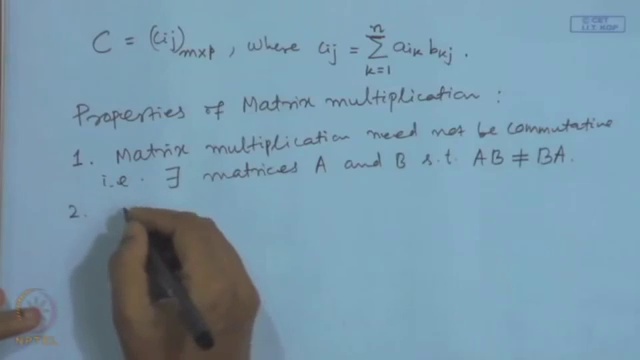 © CET
I.I.T. KGP
C = (cij)m×p , where cij = n∑k=1 aik bkj .
Properties of Matrix multiplication :
1. Matrix multiplication need not be commutative
i.e. ∃ matrices A and B s.t. AB ≠ BA.
2.
NPTEL